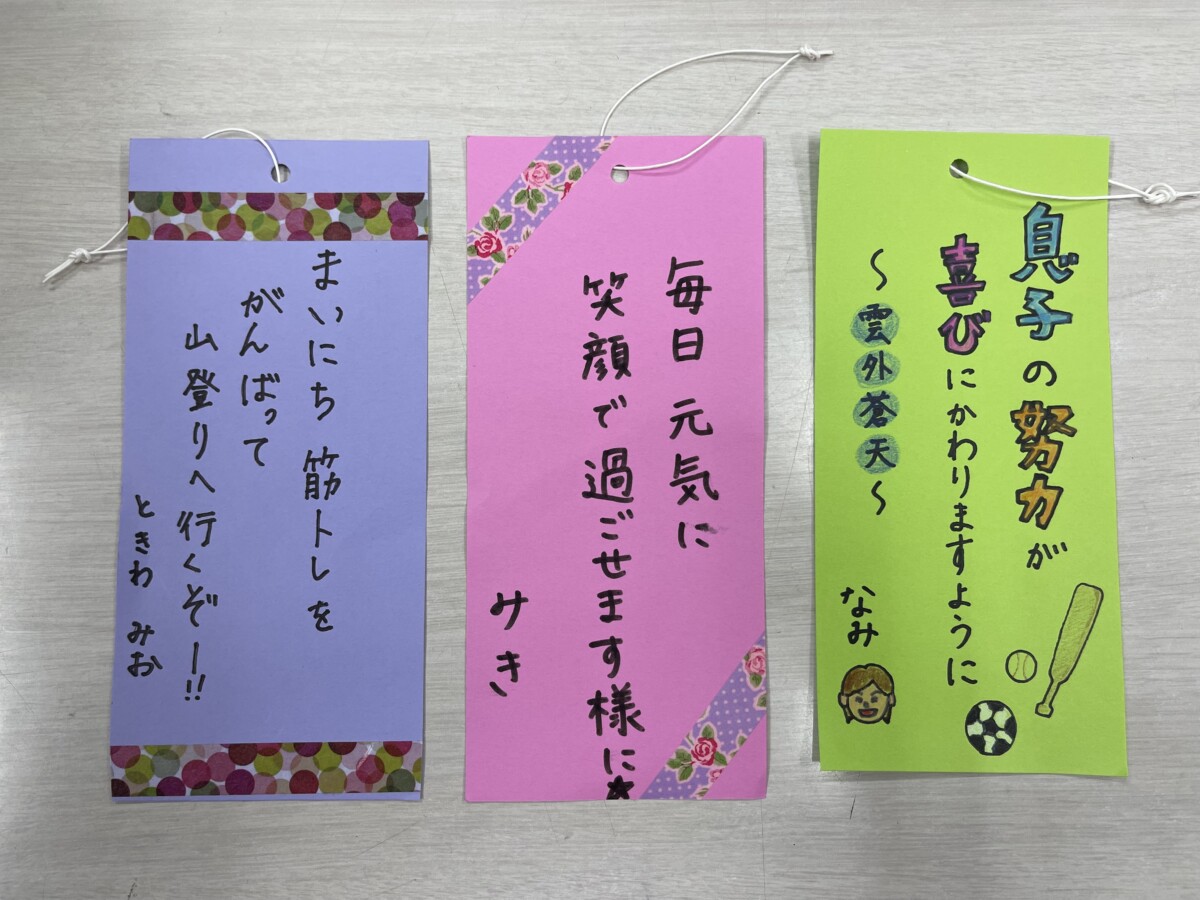 まいにち 筋トレを
がんばって
山登りへ行くぞー!!
ときわ みお
毎日 元気に
笑顔で過ごせます様に☆
みき
息子の努力が
喜びにかわりますように
～雲外蒼天～
なみ